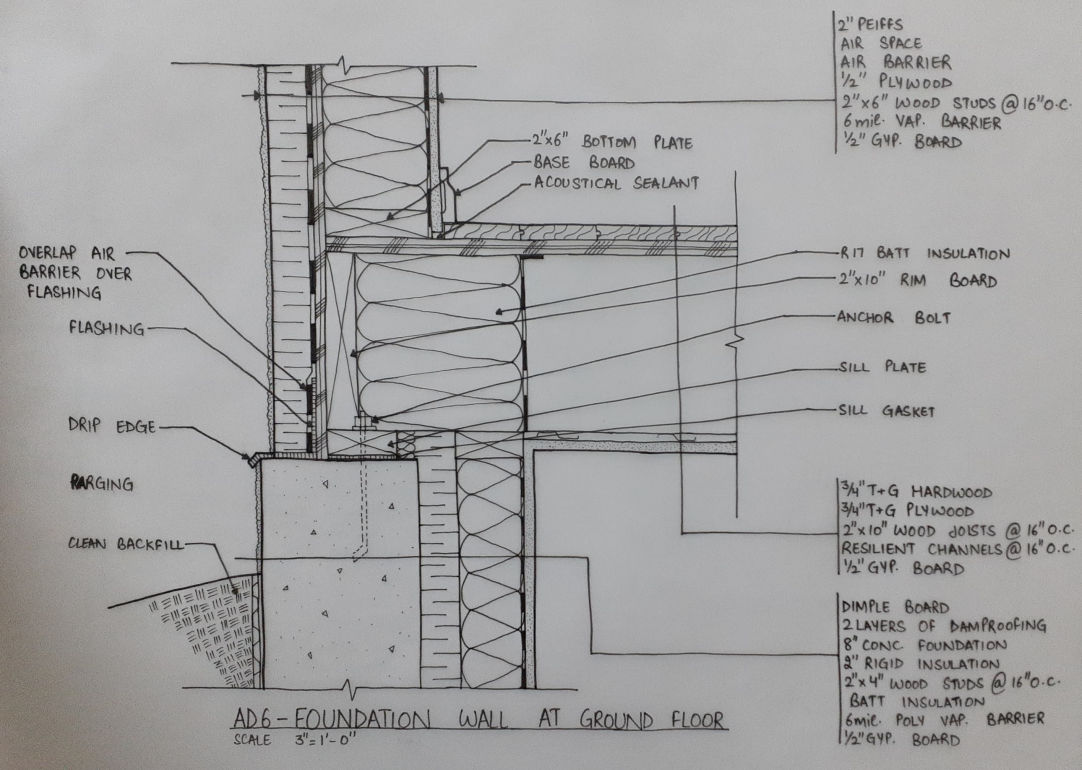 2" PEIFFS
AIR SPACE
AIR BARRIER
1/2" PLYWOOD
2"x6" WOOD STUDS @ 16" O.C.
6 mil. VAP. BARRIER
1/2" GYP. BOARD
2"x6" BOTTOM PLATE
BASE BOARD
ACOUSTICAL SEALANT
OVERLAP AIR
BARRIER OVER
FLASHING
FLASHING
DRIP EDGE
PARGING
CLEAN BACKFILL
R17 BATT INSULATION
2"x10" RIM BOARD
ANCHOR BOLT
SILL PLATE
SILL GASKET
3/4" T+G HARDWOOD
3/4" T+G PLYWOOD
2"x10" WOOD JOISTS @ 16" O.C.
RESILIENT CHANNELS @ 16" O.C.
1/2" GYP. BOARD
DIMPLE BOARD
2 LAYERS OF DAMPROOFING
8" CONC. FOUNDATION
2" RIGID INSULATION
2"x4" WOOD STUDS @ 16" O.C.
BATT INSULATION
6 mil. POLY VAP. BARRIER
1/2" GYP. BOARD
AD6 - FOUNDATION WALL AT GROUND FLOOR
SCALE 3"=1'-0"